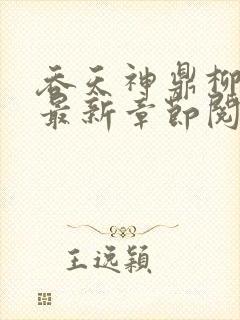 吞天神鼎柳
最新章节阅
王远颖